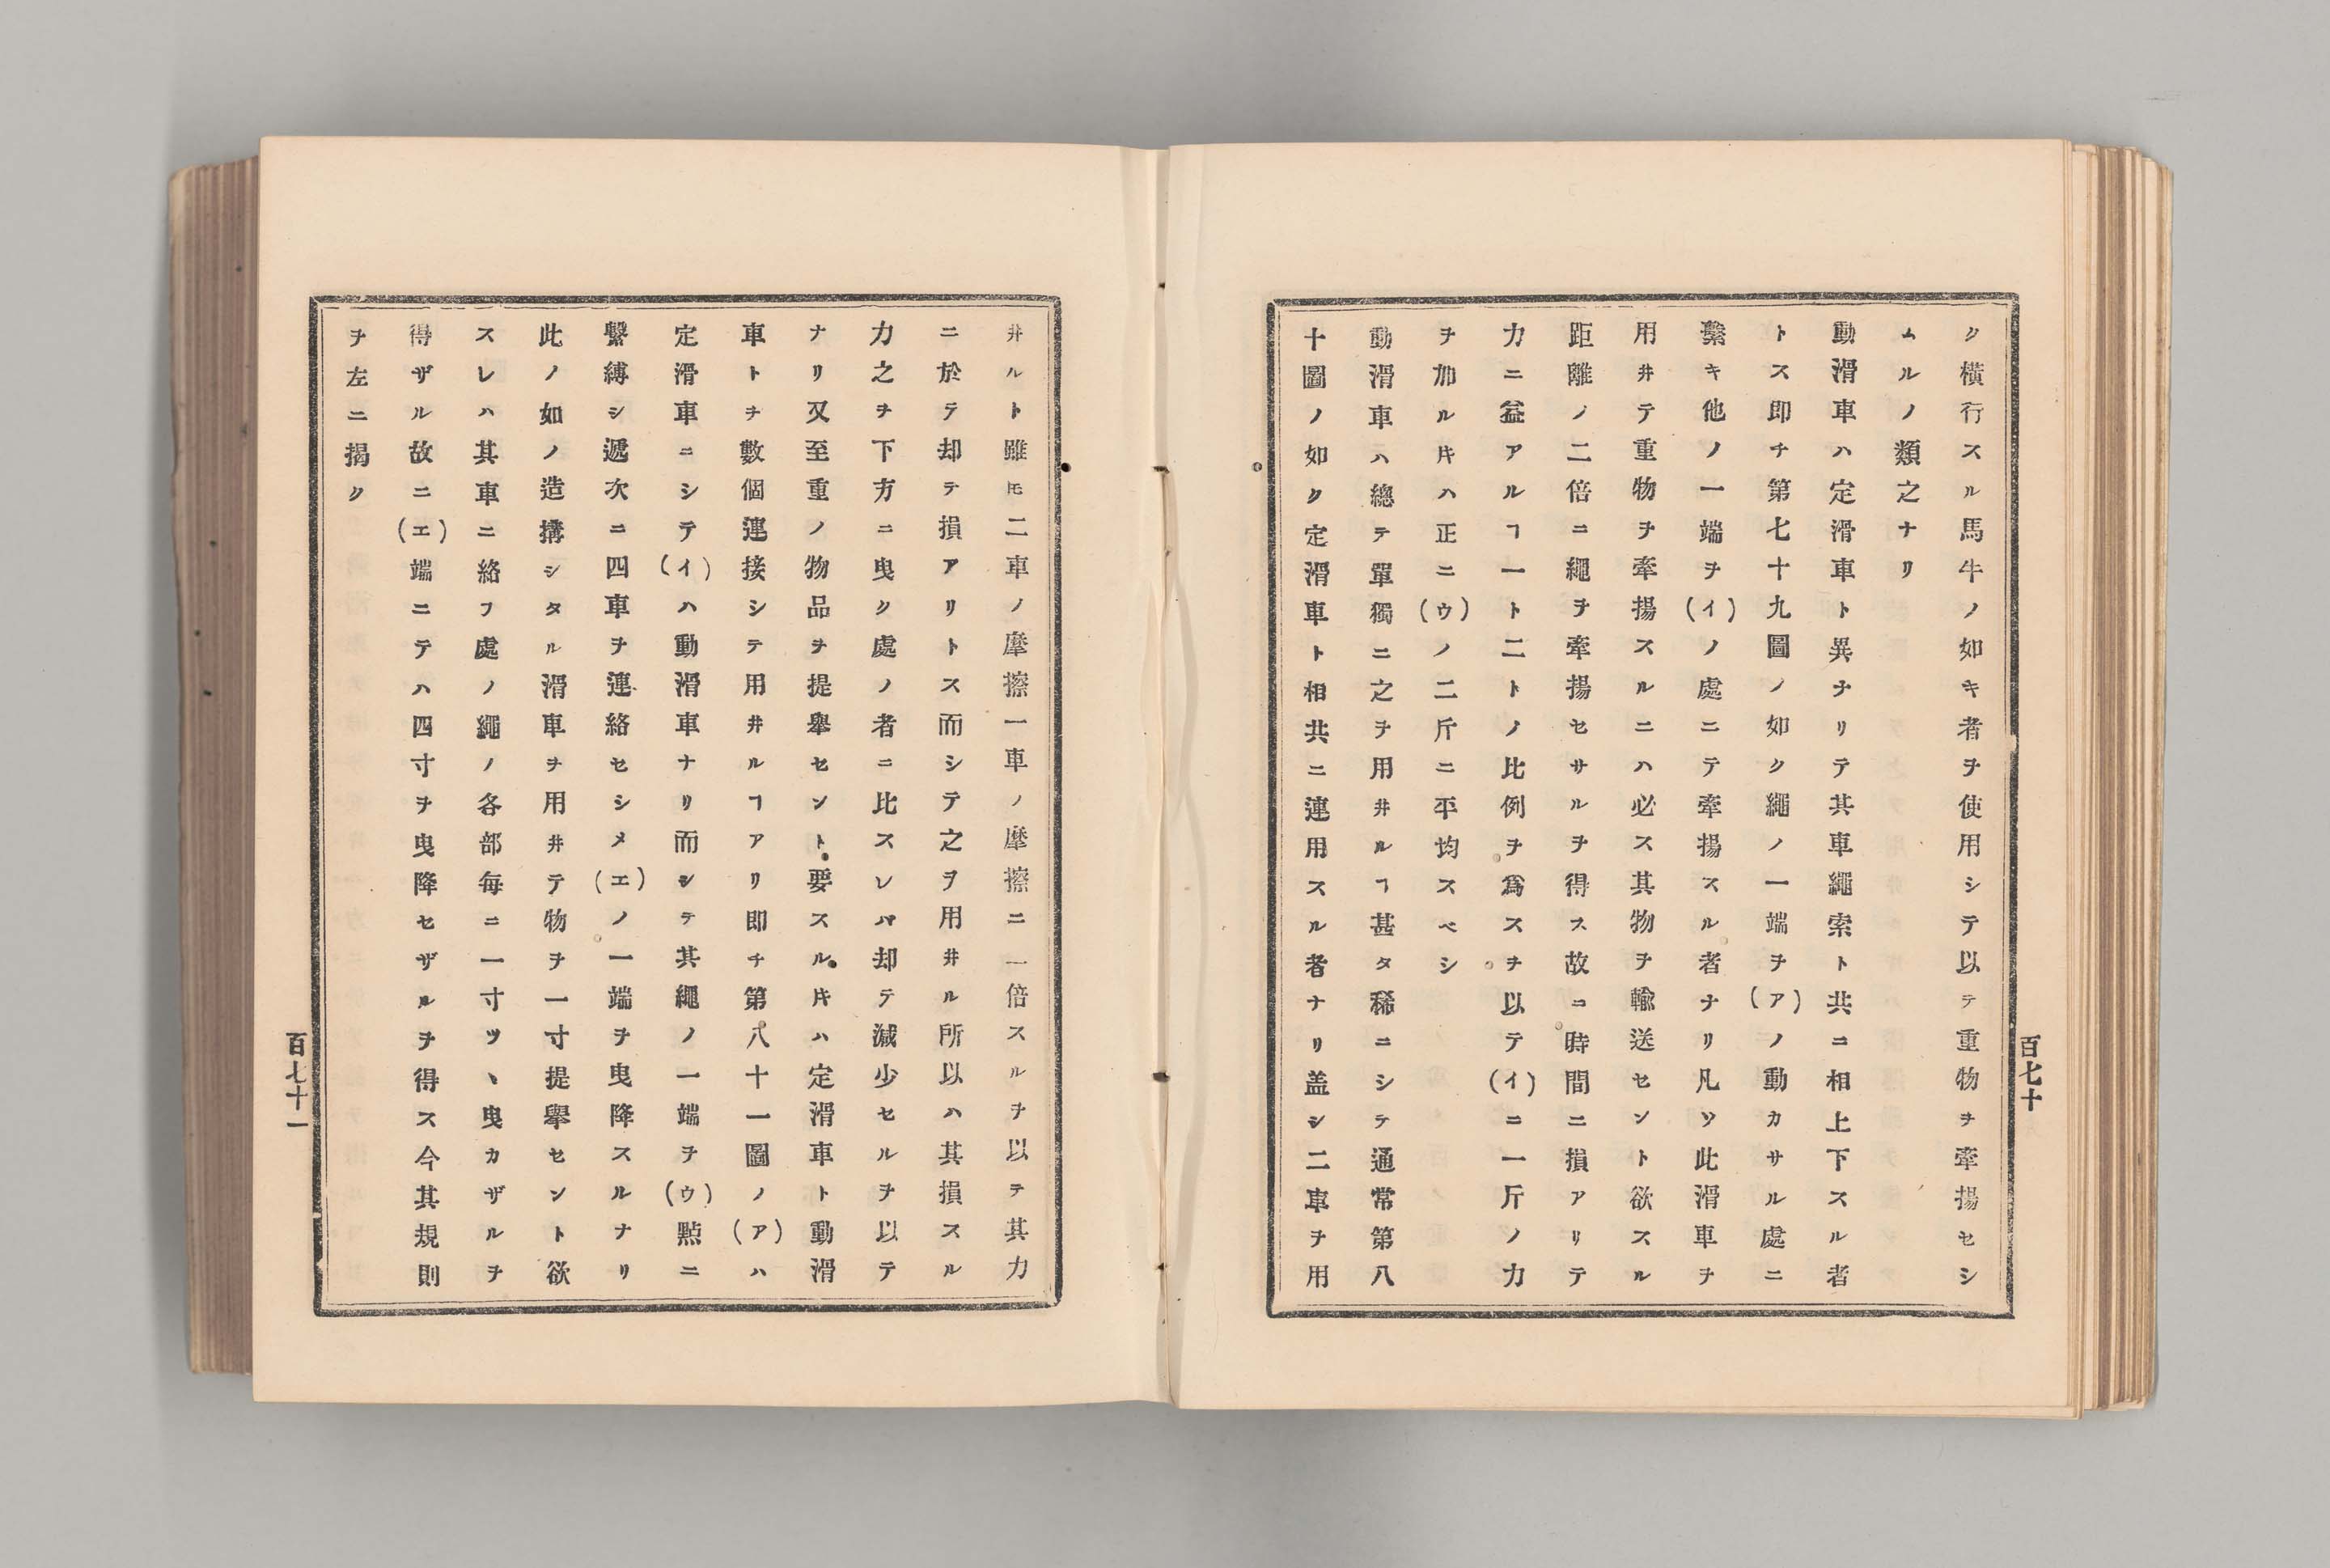 ク橫行スル馬牛ノ如キ者ヲ使用シテ以テ重物ヲ牽揚セシ
ムルノ類之ナリ
動滑車ハ定滑車ト異ナリテ其車繩索ト共ニ相上下スル者
トス即チ第七十九圖ノ如ク繩ノ一端ヲ(ア)ノ動カサル處ニ
繫キ他ノ一端ヲ(イ)ノ處ニテ牽揚スル者ナリ凡ソ此滑車ヲ
用井テ重物ヲ牽揚スルニハ必ス其物ヲ輸送セント欲スル
距離ノ二倍ニ繩ヲ牽揚セサルヲ得ス故ニ時間ニ損アリテ
力ニ益アルヿ一ト二トノ比例ヲ爲スヲ以テ(イ)ニ一斤ノ力
ヲ加ルキハ正ニ(ウ)ノ二斤ニ平均スベシ
動滑車ハ總テ單獨ニ之ヲ用井ルヿ甚タ稀ニシテ通常第八
十圖ノ如ク定滑車ト相共ニ連用スル者ナリ盖シ二車ヲ用
百七十
井ルト雖𪜈二車ノ摩擦一車ノ摩擦ニ一倍スルヲ以テ其力
ニ於テ却テ損アリトス而シテ之ヲ用井ル所以ハ其損スル
力之ヲ下方ニ曳ク處ノ者ニ比スレハ却テ減少セルヲ以テ
ナリ又至重ノ物品ヲ提擧セント要スル𪜈ハ定滑車ト動滑
車トヲ數個連接シテ用井ルヿアリ即チ第八十一圖ノ(ア)ハ
定滑車ニシテ(イ)ハ動滑車ナリ而シテ其繩ノ一端ヲ(ウ)㸃ニ
繫縛シ遞次ニ四車ヲ連絡セシメ(エ)ノ一端ヲ曳降スルナリ
此ノ如ノ造搆シタル滑車ヲ用井テ物ヲ一寸提擧セント欲
スレハ其車ニ絡フ處ノ繩ノ各部每ニ一寸ツヽ曳カザルヲ
得ザル故ニ(エ)端ニテハ四寸ヲ曳降セザルヲ得ス今其規則
ヲ左ニ揭ク
百七十一